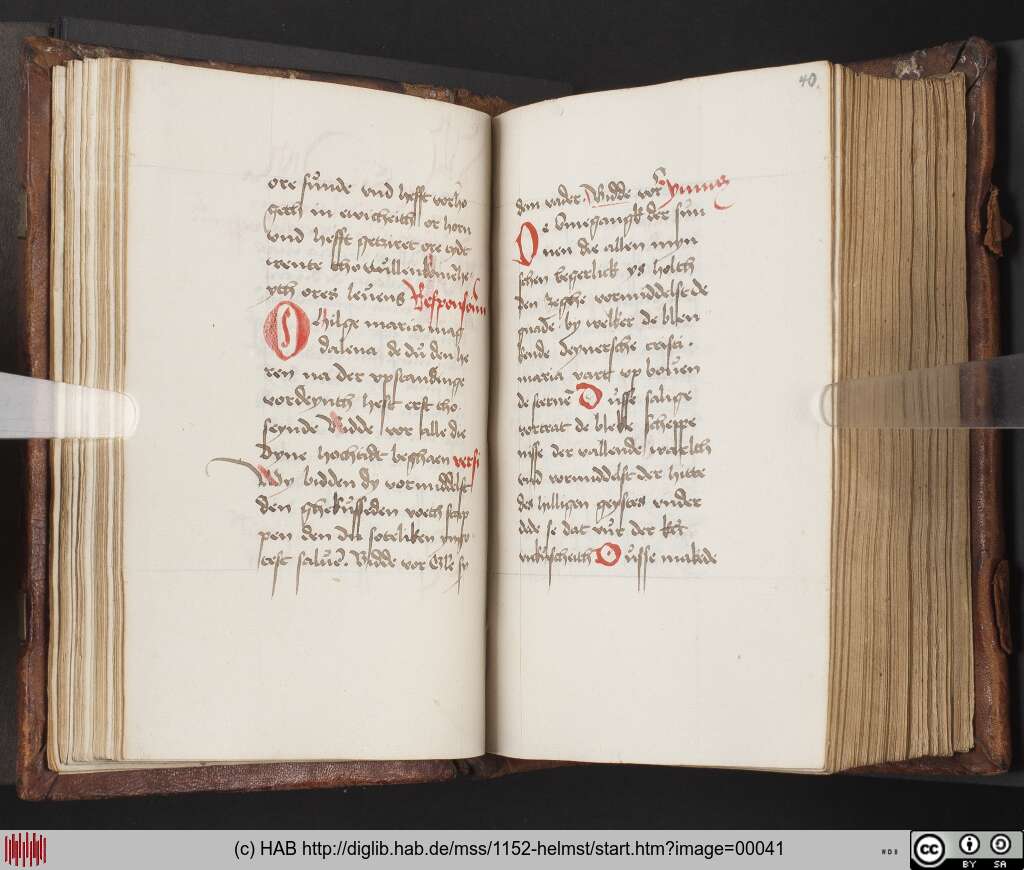 ore sunde vnd hefft vorho
geth in ewicheith or horn
vnd hefft getziret ore tydt
rente tho vullenkomēhe
yth ores leuens Responsoriū
O Hilge maria mag
dalena de du den he
ren na der vpstandinge
vordeynth hefst erst tho
seynde Bidde vor alle die
dyne hochtidt beghaen versi
Wy bidden dy vormiddelst
den ghekusseden voeth stap
pen den du soteliken
salue. Bidde vor
40.
den vader. Bidde vor ymnus
De vmegangk der sun
nen die allen myn
schen begerlick ys holth
den zeghe vormiddelst de
gnade by welker de blen
kende deynersche cristi.
maria vart vp bouen
de sterne Dusse salige
vortrat de bleke scheppe
nisse der vallende warlth
vnd vormiddelst der hitte
des hilligen geystes vnder
dede se dat vur der
vnkuscheith Dusse makede
(c) HAB http://diglib.hab.de/mss/1152-helmst/start.htm?image=00041
WDB
cc BY SA